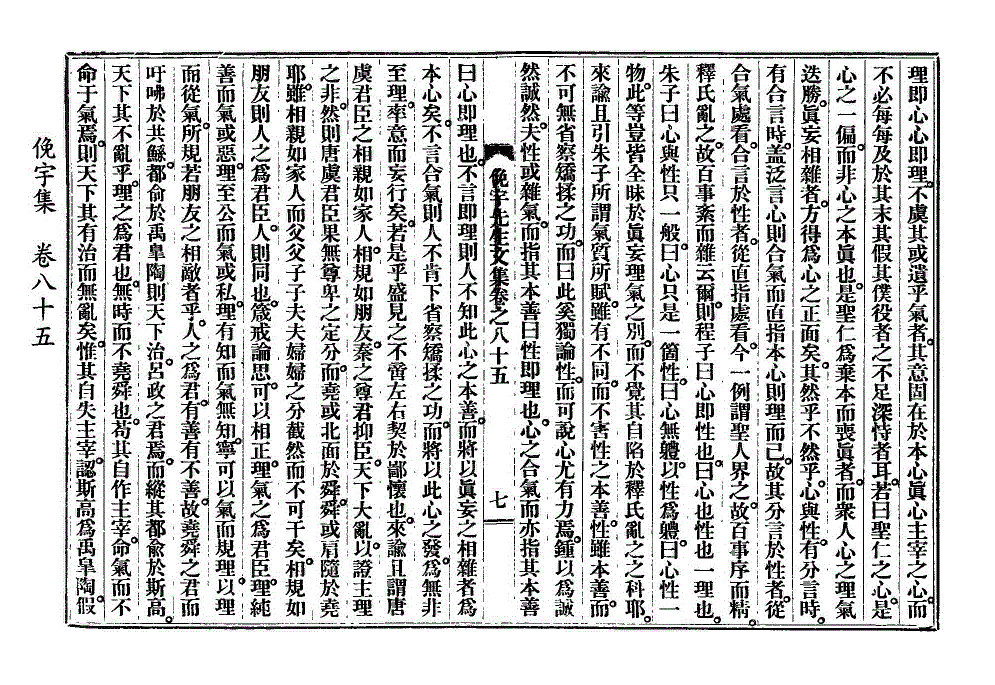 理即心心即理。不虞其或遺乎氣者。其意固在於本心眞心主宰之心。而
不必每每及於其末。其假其僕役者之不足深恃者耳。若曰聖仁之心。是
心之一偏。而非心之本眞也。是聖仁爲棄本而喪眞者。而衆人心之理氣
迭勝。眞妄相雜者。方得爲心之正面矣。其然乎不然乎。心與性。有分言時。
有合言時。盖泛言心則合氣。而直指本心則理而已。故其分言於性者。從
合氣處看。合言於性者。從直指處看。今一例謂聖人界之。故百事序而精。
釋氏亂之。故百事紊而雜云爾。則程子曰心即性也。曰心也性也一理也。
朱子曰心與性只一般。曰心只是一箇性。曰心無軆。以性爲軆。曰心性一
物。此等豈皆全昧於眞妄理氣之別。而不覺其自陷於釋氏亂之之科耶。
來諭且引朱子所謂氣質所賦。雖有不同。而不害性之本善。性雖本善。而
不可無省察矯揉之功。而曰此奚獨論性。而可說心尤有力焉。鍾以爲誠
然誠然。夫性或雜氣。而指其本善曰性即理也。心之合氣而亦指其本善
俛宇先生文集卷之八十五
七
曰心即理也。不言即理則人不知此心之本善。而將以眞妄之相雜者爲
本心矣。不言合氣則人不肯下省察矯揉之功。而將以此心之發。爲無非
至理。率意而妄行矣。若是乎盛見之不啻左右契於鄙懷也。來諭且謂唐
虞君臣之相親如家人。相規如朋友。秦之尊君抑臣。天下大亂。以證主理
之非。然則唐虞君臣果無尊卑之定分。而堯或北面於舜。舜或肩隨於堯
耶。雖相親如家人。而父父子子夫夫婦婦之分截然而不可干矣。相規如
朋友則人之爲君臣。人則同也。箴戒論思。可以相正。理氣之爲君臣。理純
善而氣或惡。理至公而氣或私。理有知而氣無知。寧可以氣而規理。以理
而從氣。所規若朋友之相敵者乎。人之爲君。有善有不善。故堯舜之君而
吁咈於共鯀。都兪於禹皐陶則天下治。呂政之君焉而縱其都兪於斯高。
天下其不亂乎。理之爲君也。無時而不堯舜也。苟其自作主宰。命氣而不
命于氣焉。則天下其有治而無亂矣。惟其自失主宰。認斯高爲禹皐陶。假
俛宇集 卷八十五